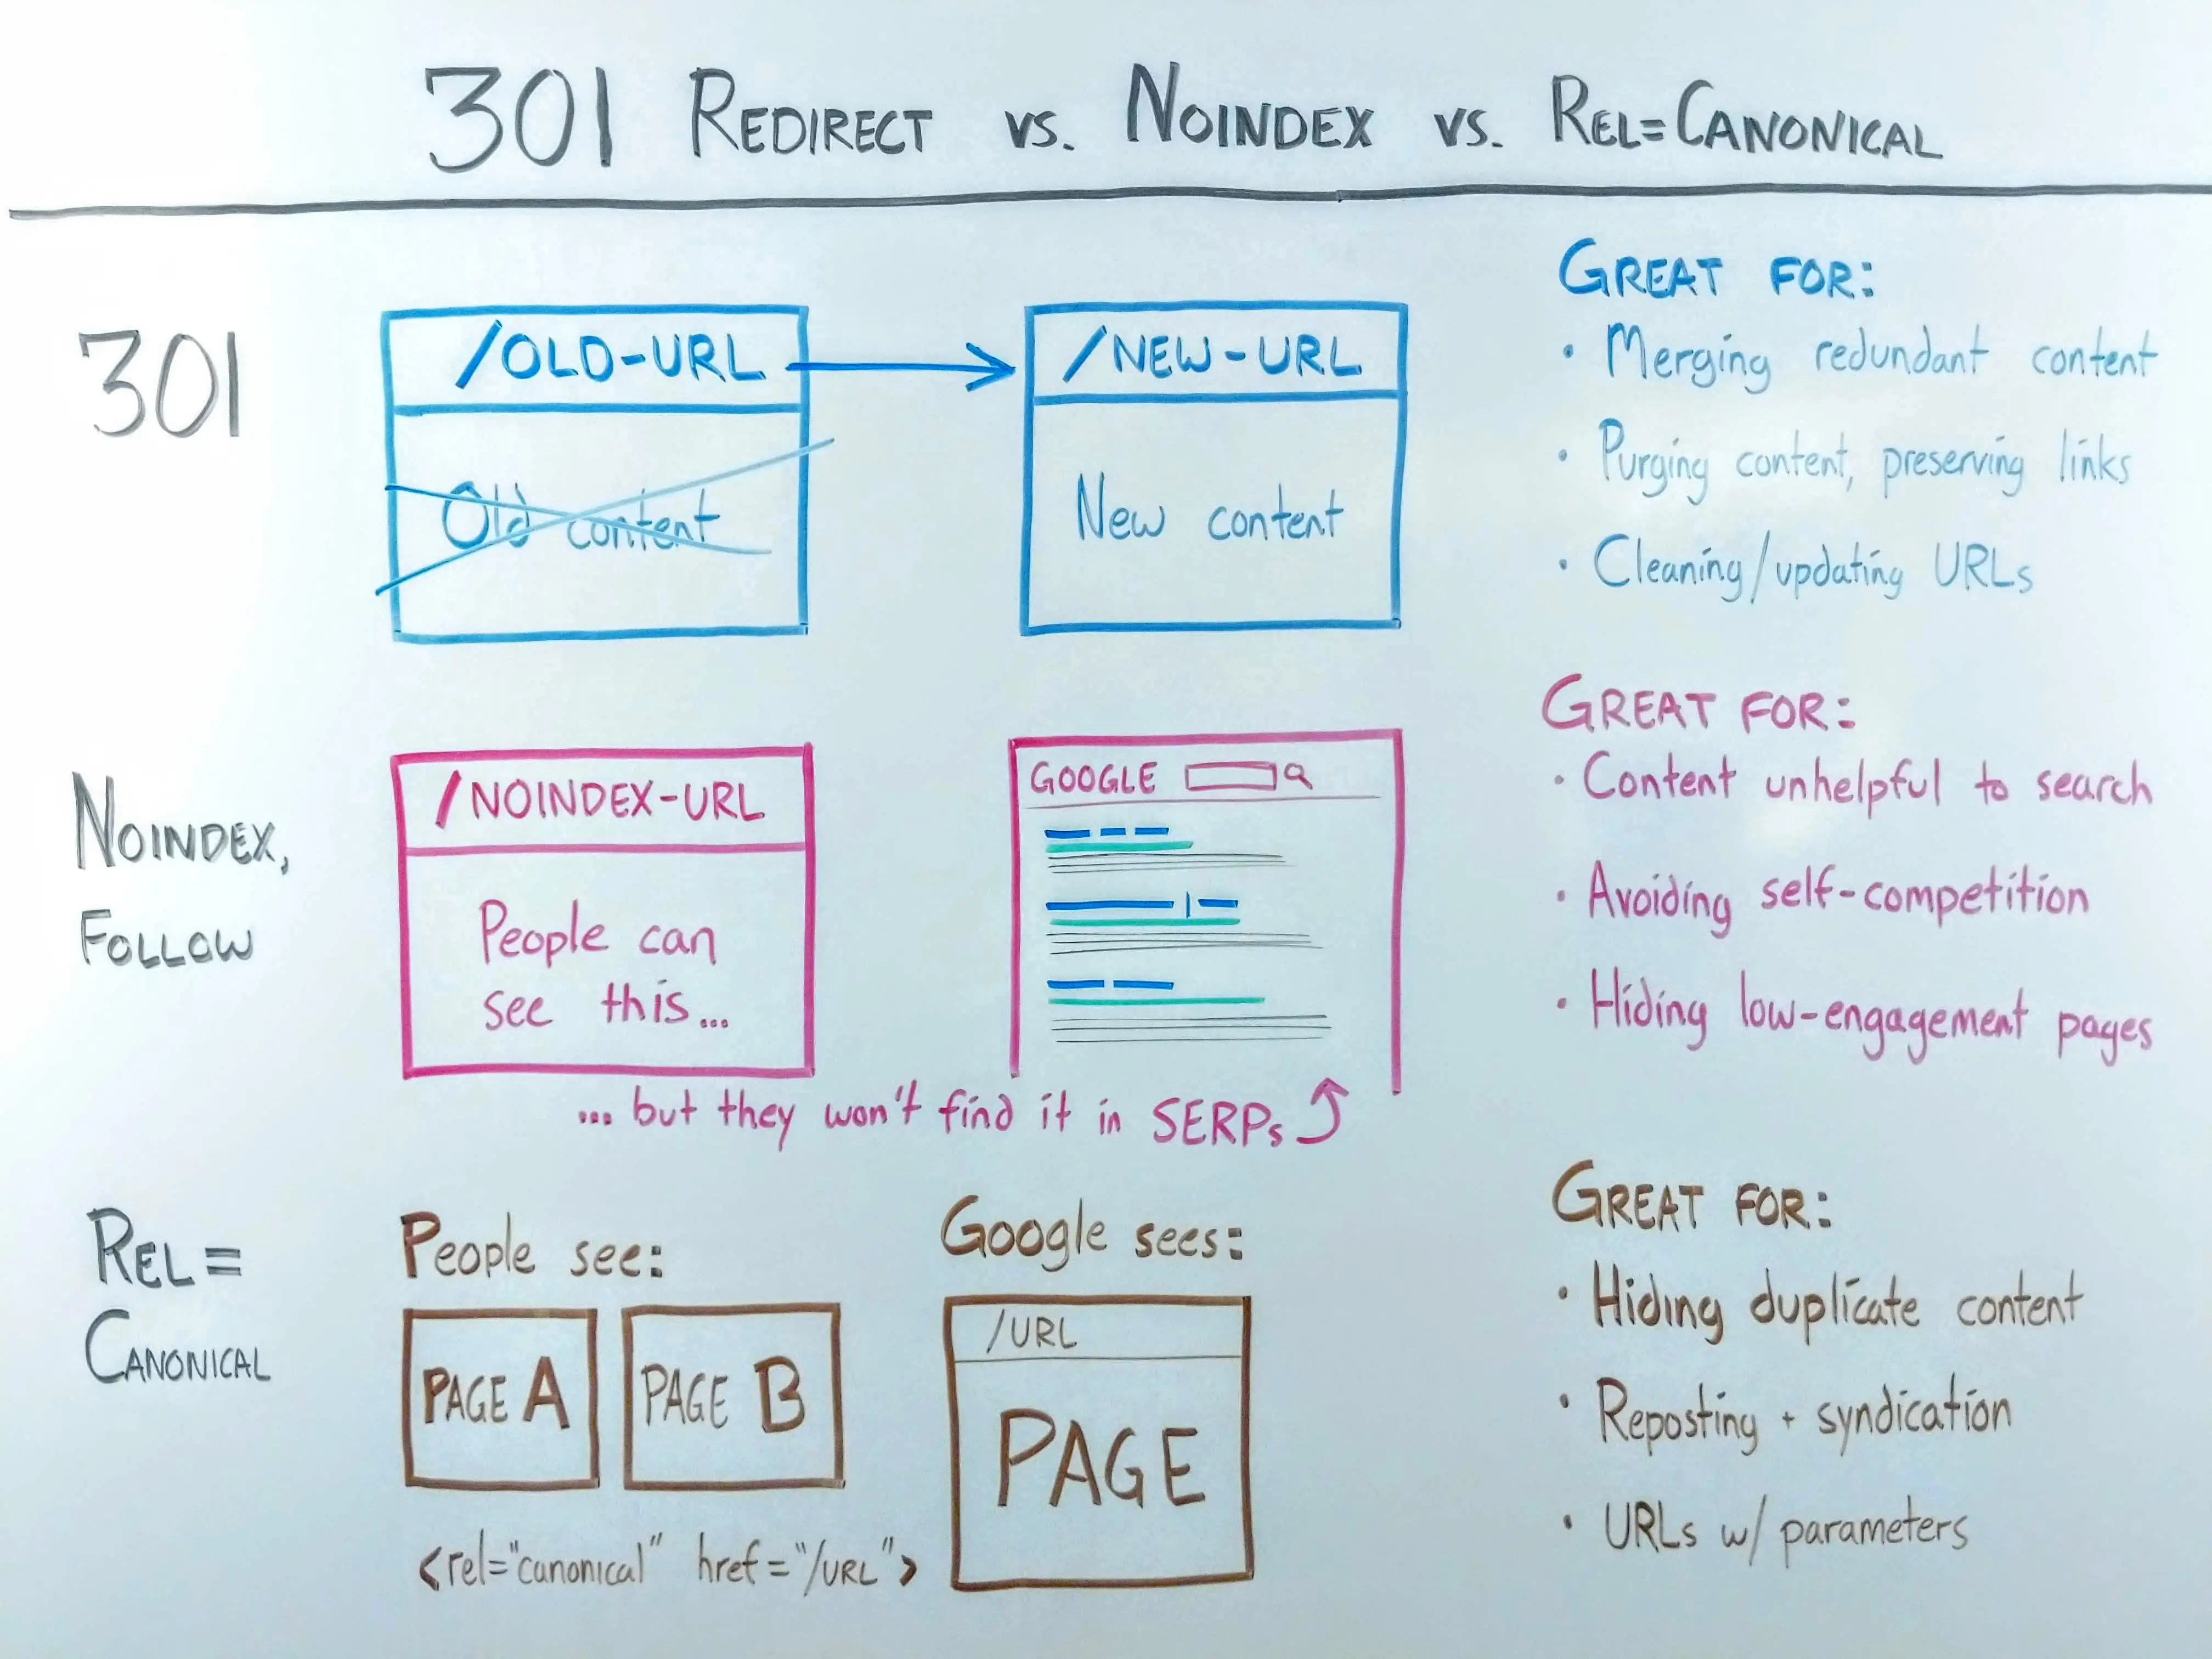 301 REDIRECT VS. NOINDEX VS. REL=CANONICAL
301
/OLD-URL
Old content
/NEW-URL
New content
GREAT FOR:
• Merging redundant content
• Purging content, preserving links
• Cleaning/updating URLs
NOINDEX,
FOLLOW
/NOINDEX-URL
People can
see this...
GOOGLE
... but they won't find it in SERPs
GREAT FOR:
• Content unhelpful to search
• Avoiding self-competition
• Hiding low-engagement pages
REL=
CANONICAL
People see:
PAGE A
PAGE B
<rel="canonical" href="/URL">
Google sees:
/URL
PAGE
GREAT FOR:
• Hiding duplicate content
• Reposting + syndication
• URLs w/ parameters